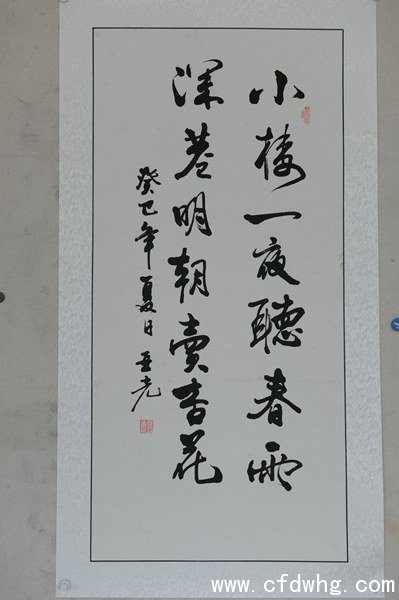 小樓一夜聽春雨
深巷明朝賣杏花
癸巳年夏日
www.cfdwhg.com